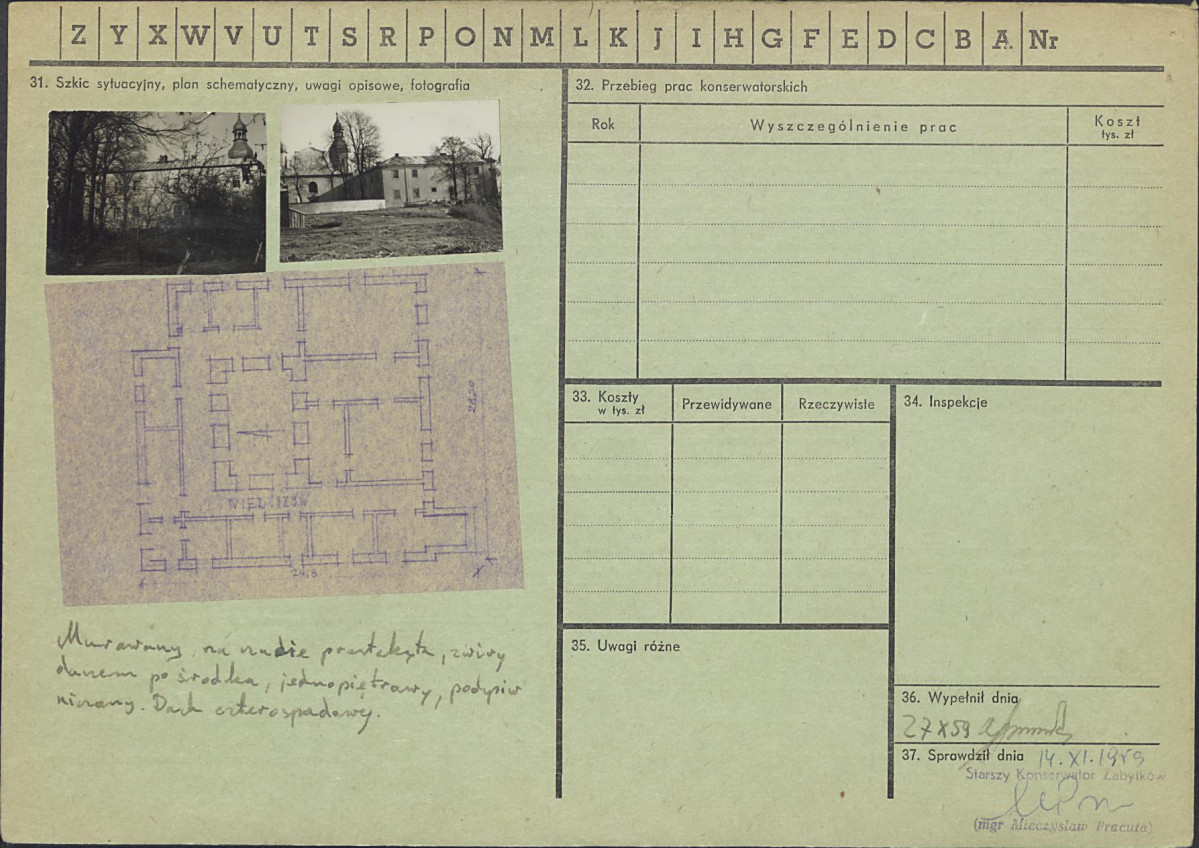 Z Y X W V U T S R P O N M L K J I H G F E D C B A. Nr
31. Szkic sytuacyjny, plan schematyczny, uwagi opisowe, fotografia
28,50
WIELGIZÓW
24.3
Murowany, na rzucie prostokąta, z wiry
darzem po środku, jednopiętrowy, podypiw
niczony. Dach czterospadowy.
32. Przebieg prac konserwatorskich
Rok
Wyszczególnienie prac
Koszt
tys. zł
33. Koszty
w tys. zł
Przewidywane
Rzeczywiste
34. Inspekcje
35. Uwagi różne
36. Wypełnił dnia
27 X 59
37. Sprawdził dnia 14. XI. 1959
Starszy Konserwator Zabytków
(mgr Mieczysław Pracuta)